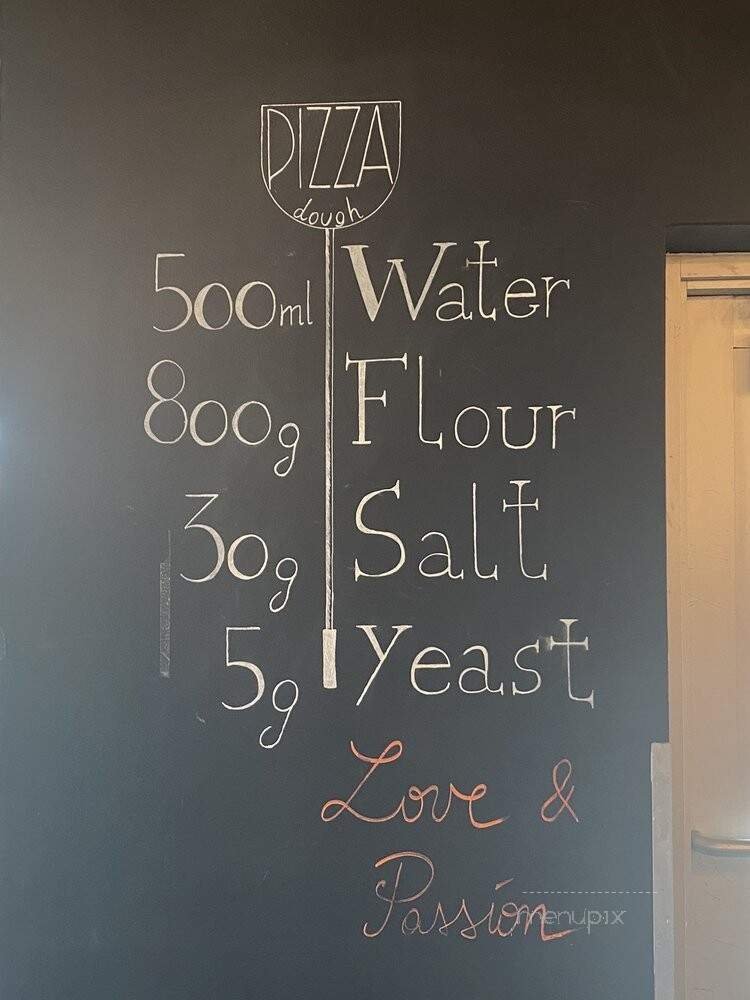 PIZZA
dough
500ml Water
800g Flour
30g Salt
5g Yeast
Love &
Passion
menupix